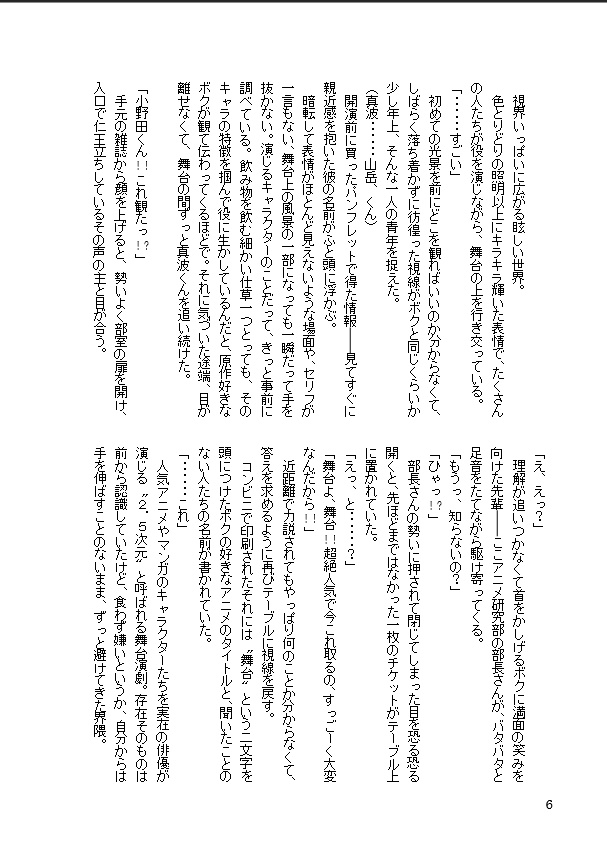 視界いっぱいに広がる眩しい世界。
色とりどりの照明以上にキラキラ輝いた表情で、たくさん
の人たちが役を演じながら、舞台の上を行き交っている。
「・・・・すごい」
初めての光景を前にどこを観ればいいのか分からなくて、
しばらく落ち着かずに彷徨った視線がボクと同じくらいか
少し年上、そんな一人の青年を捉えた。
(真波・・・・山岳、くん)
開演前に買ったパンフレットで得た情報――見てすぐに
親近感を抱いた彼の名前がふと頭に浮かぶ。
暗転して表情がほとんど見えないような場面や、セリフが
一言もない、舞台上の風景の一部になっても一瞬だって手を
抜かない。演じるキャラクターのことだって、きっと事前に
調べている。飲み物を飲む細かい仕草一つとっても、その
キャラの特徴を掴んで役に生かしているんだと、原作好きな
ボクが観て伝わってくるほどで。それに気づいた途端、目が
離せなくて、舞台の間ずっと真波くんを追い続けた。
「小野田くん!!これ観たっ!?」
手元の雑誌から顔を上げると、勢いよく部室の扉を開け、
入口で仁王立ちしているその声の主と目が合う。
「え、えっ?」
理解が追いつかなくて首をかしげるボクに満面の笑みを
向けた先輩――ここアニメ研究部の部長さんが、バタバタと
足音をたてながら駆け寄ってくる。
「もうっ、知らないの?」
「ひゃっ!?」
部長さんの勢いに押されて閉じてしまった目を恐る恐る
開くと、先ほどまではなかった一枚のチケットがテーブル上
に置かれていた。
「えっ、と・・・・・?」
「舞台よ、舞台!!超絶人気で今これ取るの、すっごーく大変
なんだから!!」
近距離で力説されてもやっぱり何のことか分からなくて、
答えを求めるように再びテーブルに視線を戻す。
コンビニで印刷されたそれには〝舞台〟という二文字を
頭につけたボクの好きなアニメのタイトルと、聞いたことの
ない人たちの名前が書かれていた。
「・・・・これ」
人気アニメやマンガのキャラクターたちを実在の俳優が
演じる〝2．5次元〟と呼ばれる舞台演劇。存在そのものは
前から認識していたけど、食わず嫌いというか、自分からは
手を伸ばすことのないまま、ずっと避けてきた界隈。
6